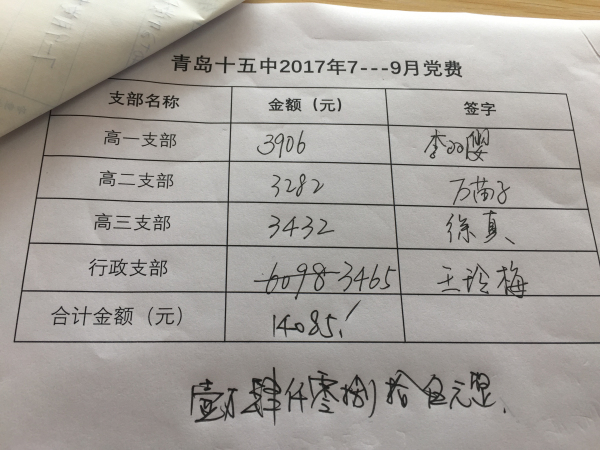 青岛十五中2017年7---9月党费
支部名称 金额（元） 签字
高一支部 3906
高二支部 3282 万苗子
高三支部 3432 徐真
行政支部 6098 3465 王玲梅
合计金额（元） 14085.
壹万肆仟零捌拾伍元整.